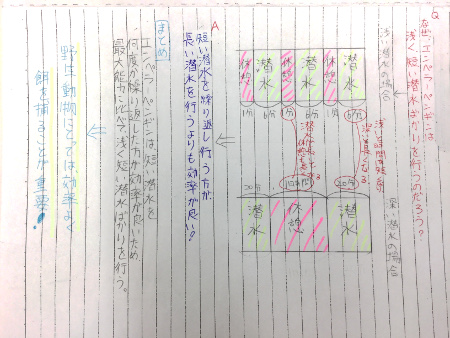 Q
なぜ、エンペラーペンギンは
浅く短い潜水ばかりを行うのだろう。
浅い潜水の場合
潜水
休憩
潜水
休憩
潜水
休憩
6分
1分
6分
1分
6分
1分
浅い時間
深い
長くなる。
深い潜水の場合
潜水
休憩
潜水
20分
20分
A
短い潜水を繰り返し行う方が、
長い潜水を行うよりも効率が良い!
まとめ
エンペラーペンギンは、短い潜水を
何度か繰り返した方が効率が良いため、
最大能力に比べて、浅く短い潜水ばかりを行う。
野生動物にとっては、効率よく
餌を捕ることが重要!